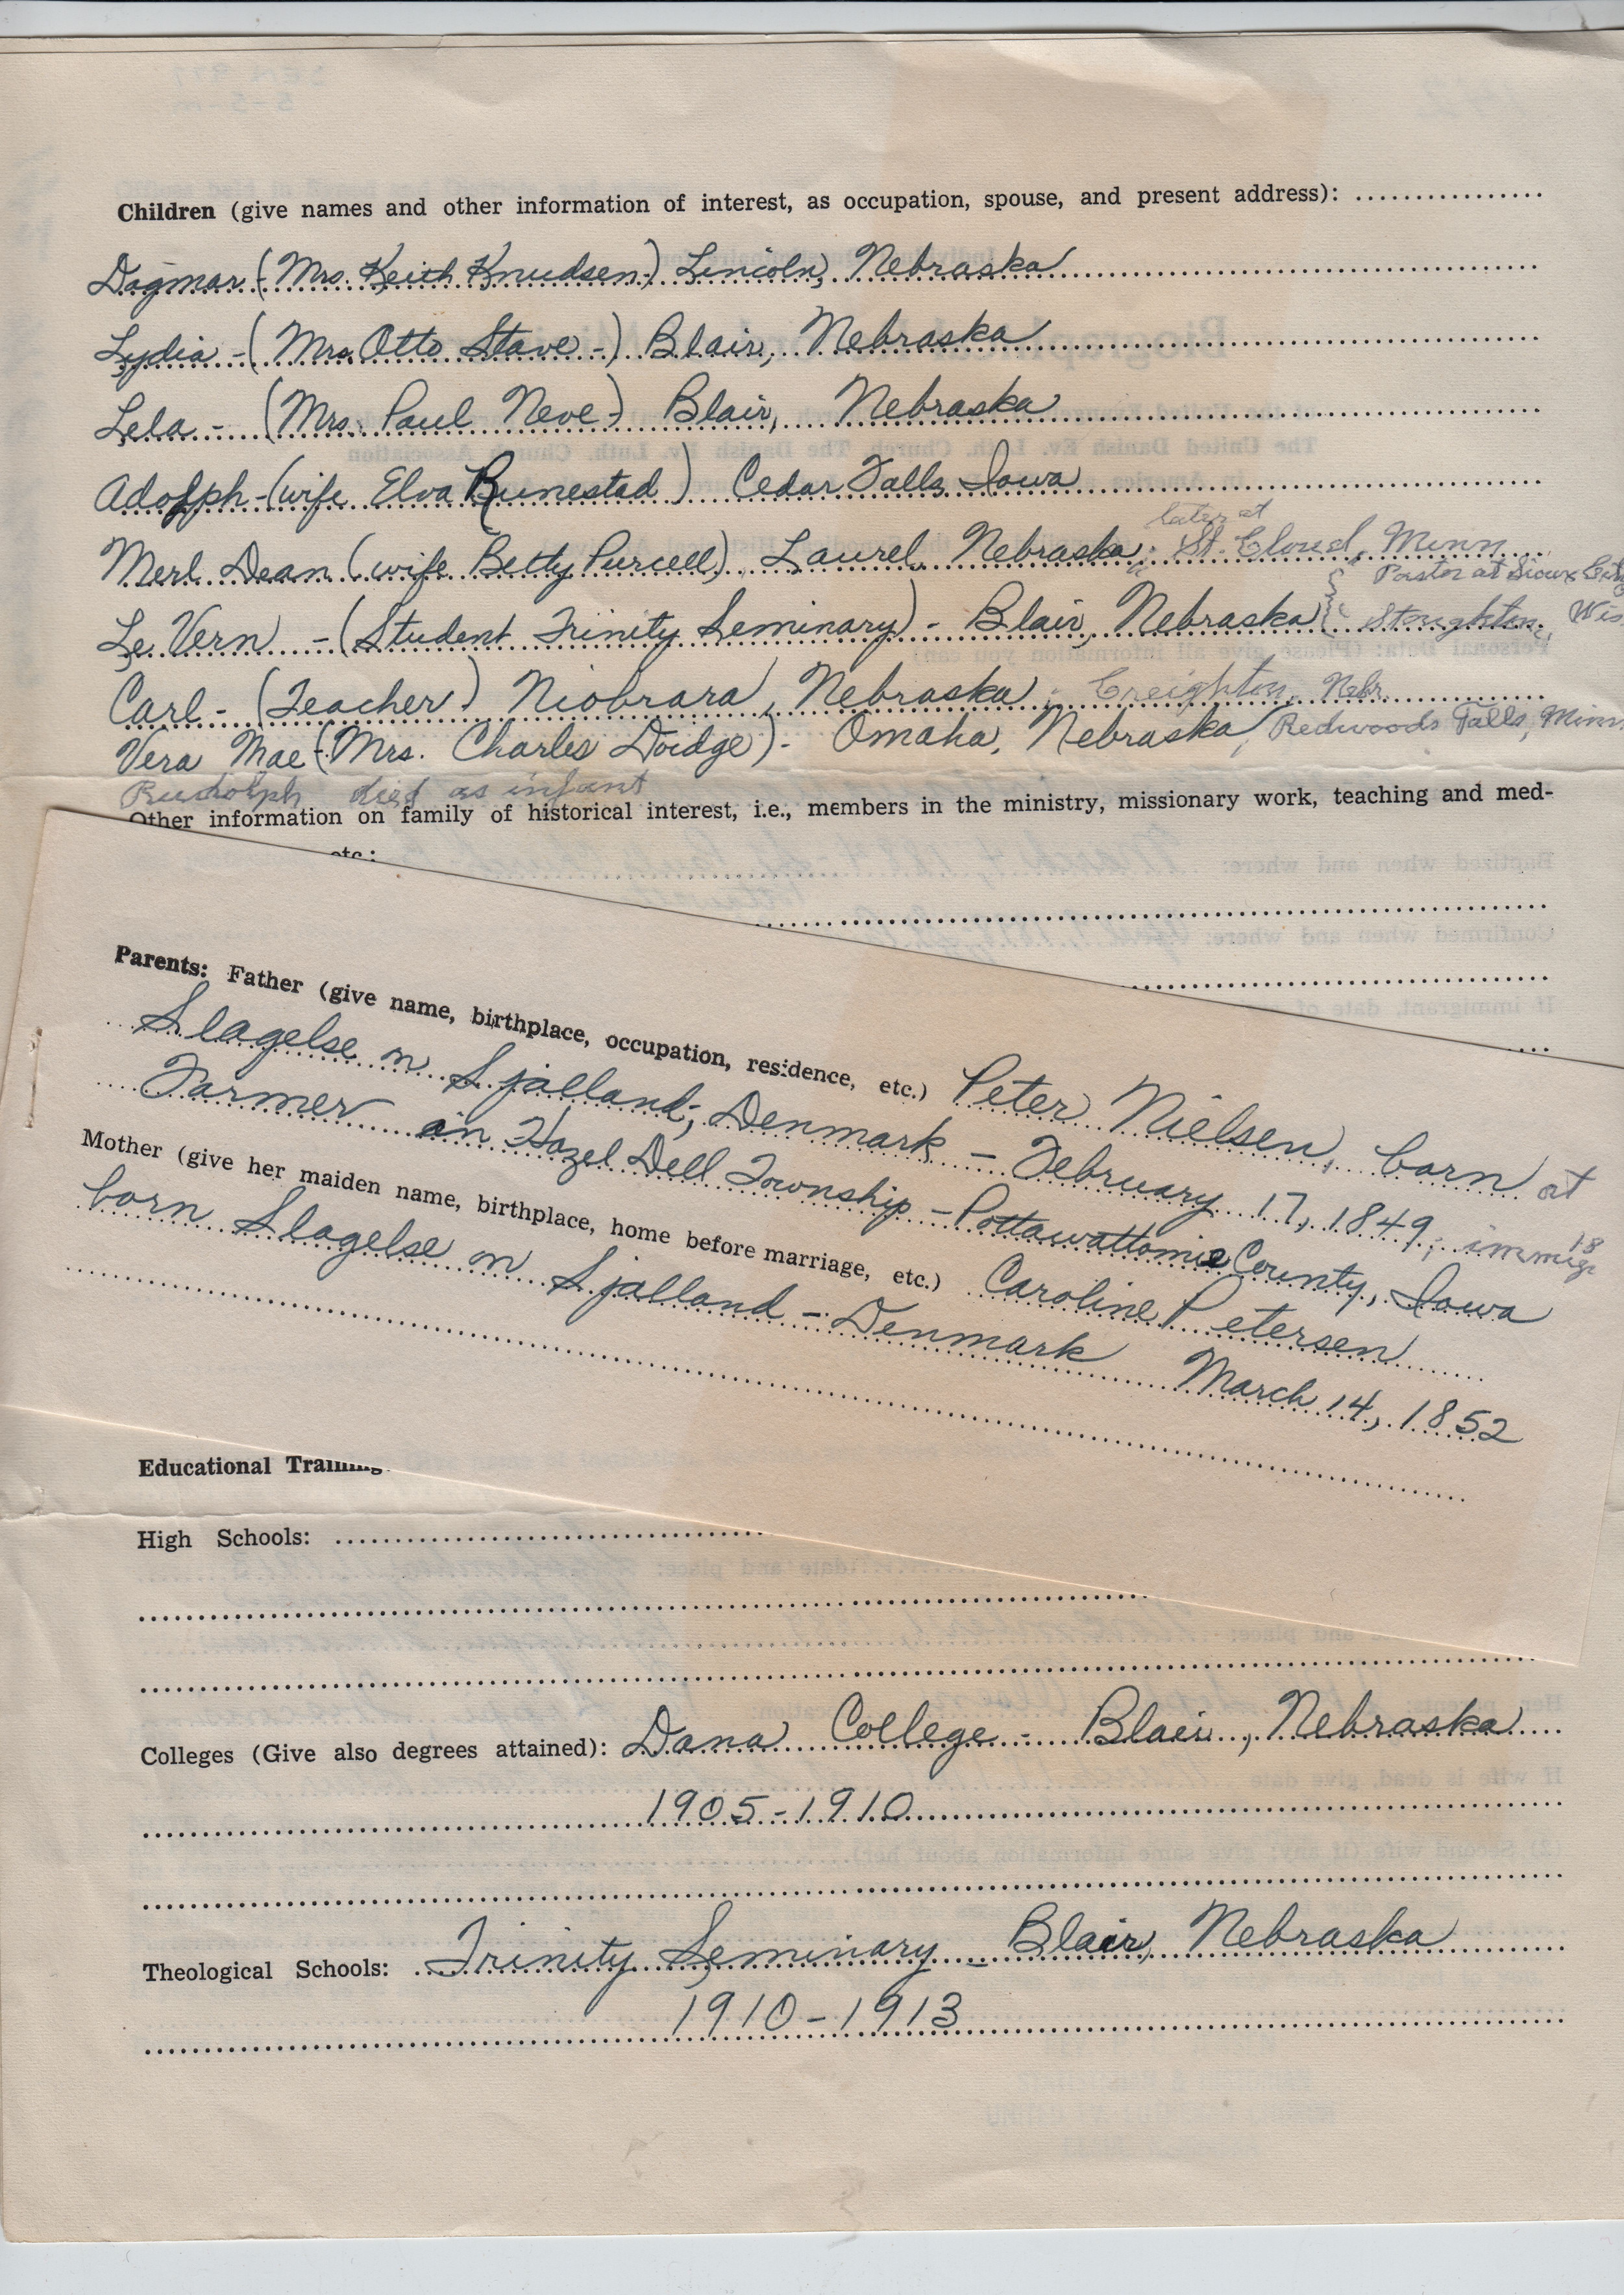 Children (give names and other information of interest, as occupation, spouse, and present address):
Dagmar (Mrs. Keith Knudsen) Lincoln, Nebraska
Lydia - (Mrs. Otto Stave -) Blair, Nebraska
Lela - (Mrs. Paul Neve -) Blair, Nebraska
Adolph - (wife Elva Runestad) Cedar Falls, Iowa
later at
Merl Dean (wife Betty Purcell) Laurel, Nebraska; St. Cloud, Minn
Pastor at Sioux City
Le Vern - (Student Trinity Seminary) - Blair, Nebraska Stoughton, Wis.
Carl - (Teacher) Niobrara, Nebraska; Creighton, Nebr.
Vera Mae (Mrs. Charles Doidge) - Omaha, Nebraska, Redwoods Falls, Minn.
Rudolph died as infant
Other information on family of historical interest, i.e., members in the ministry, missionary work, teaching and med-
etc.:
Parents: Father (give name, birthplace, occupation, residence, etc.) Peter Nielsen, born at
Slagelse on Sjalland; Denmark - February 17, 1849; immigr 18
Farmer in Hazel Dell Township - Pottawattomie County, Iowa
Mother (give her maiden name, birthplace, home before marriage, etc.) Caroline Petersen
born Slagelse on Sjalland - Denmark March 14, 1852
Educational Training
High Schools:
Colleges (Give also degrees attained): Dana College - Blair, Nebraska
1905-1910
Theological Schools: Trinity Seminary - Blair, Nebraska
1910-1913